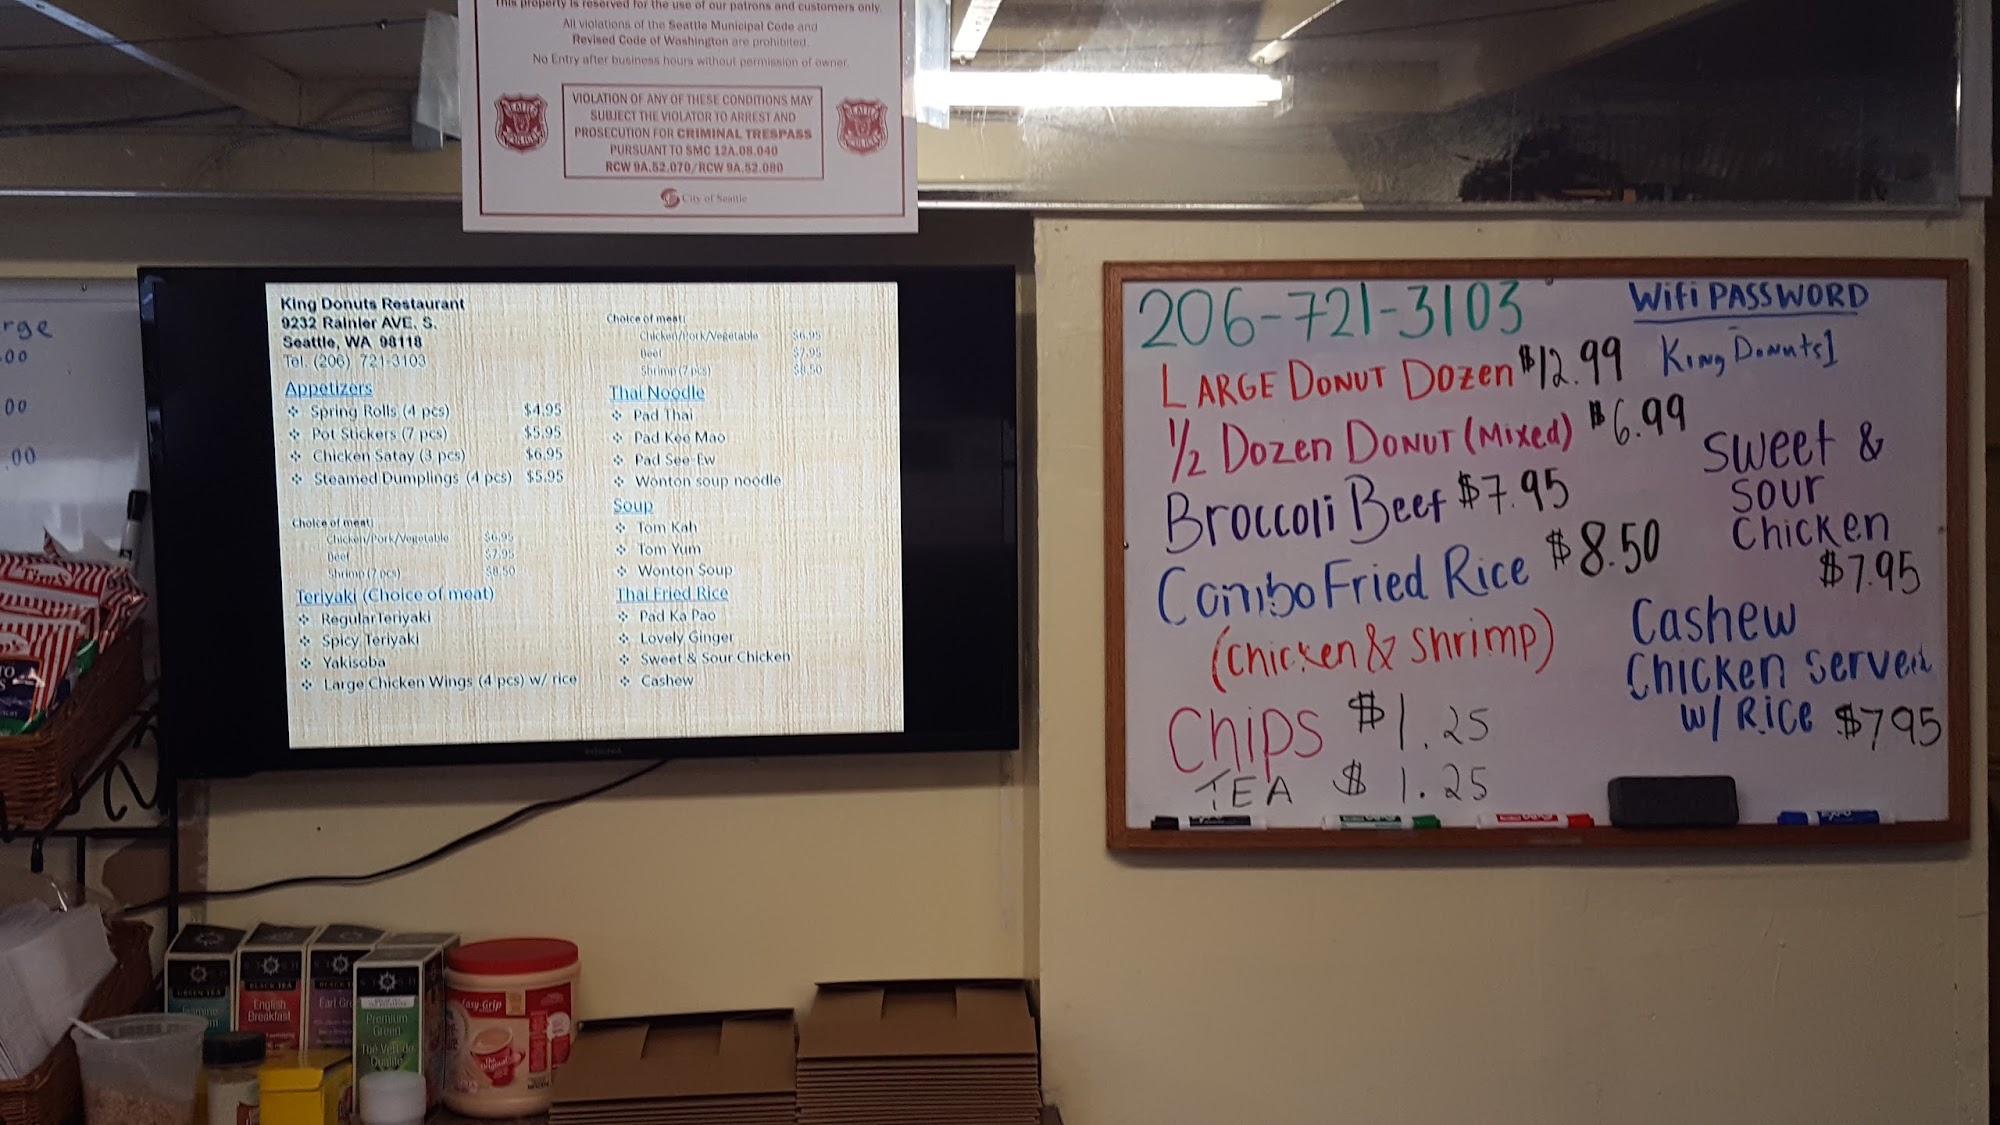 This property is reserved for the use of our patrons and customers only.
All violations of the Seattle Municipal Code and
Revised Code of Washington are prohibited.
No Entry after business hours without permission of owner.
VIOLATION OF ANY OF THESE CONDITIONS MAY
SUBJECT THE VIOLATOR TO ARREST AND
PROSECUTION FOR CRIMINAL TRESPASS
PURSUANT TO SMC 12A.08.040
RCW 9A.52.070/RCW 9A.52.080
City of Seattle
rge
.00
00
.00
King Donuts Restaurant
9232 Rainier AVE. S.
Seattle, WA 98118
Tel. (206) 721-3103
Appetizers
❖ Spring Rolls (4 pcs) $4.95
❖ Pot Stickers (7 pcs) $5.95
❖ Chicken Satay (3 pcs) $6.95
❖ Steamed Dumplings (4 pcs) $5.95
Choice of meat:
Chicken/Pork/Vegetable $6.95
Beef $7.95
Shrimp (7 pcs) $8.50
Teriyaki (Choice of meat)
❖ Regular Teriyaki
❖ Spicy Teriyaki
❖ Yakisoba
❖ Large Chicken Wings (4 pcs) w/ rice
Choice of meat:
Chicken/Pork/Vegetable $6.95
Beef $7.95
Shrimp (7 pcs) $8.50
Thai Noodle
❖ Pad Thai
❖ Pad Kee Mao
❖ Pad See-Ew
❖ Wonton soup noodle
Soup
❖ Tom Kah
❖ Tom Yum
❖ Wonton Soup
Thai Fried Rice
❖ Pad Ka Pao
❖ Lovely Ginger
❖ Sweet & Sour Chicken
❖ Cashew
206-721-3103
LARGE DONUT DOZEN $12.99
1/2 DOZEN DONUT (Mixed) $6.99
BROCCOLI BEEF $7.95
Combo Fried Rice $8.50
(Chicken & Shrimp)
Chips $1.25
TEA $1.25
WiFi PASSWORD
King Donuts1
Sweet &
Sour
Chicken
$7.95
Cashew
Chicken served
w/ Rice $795
Tim's
GREEN TEA
BLACK TEA
English
Breakfast
Earl Gr
Premium
Green
Easy-Grip
The
Original